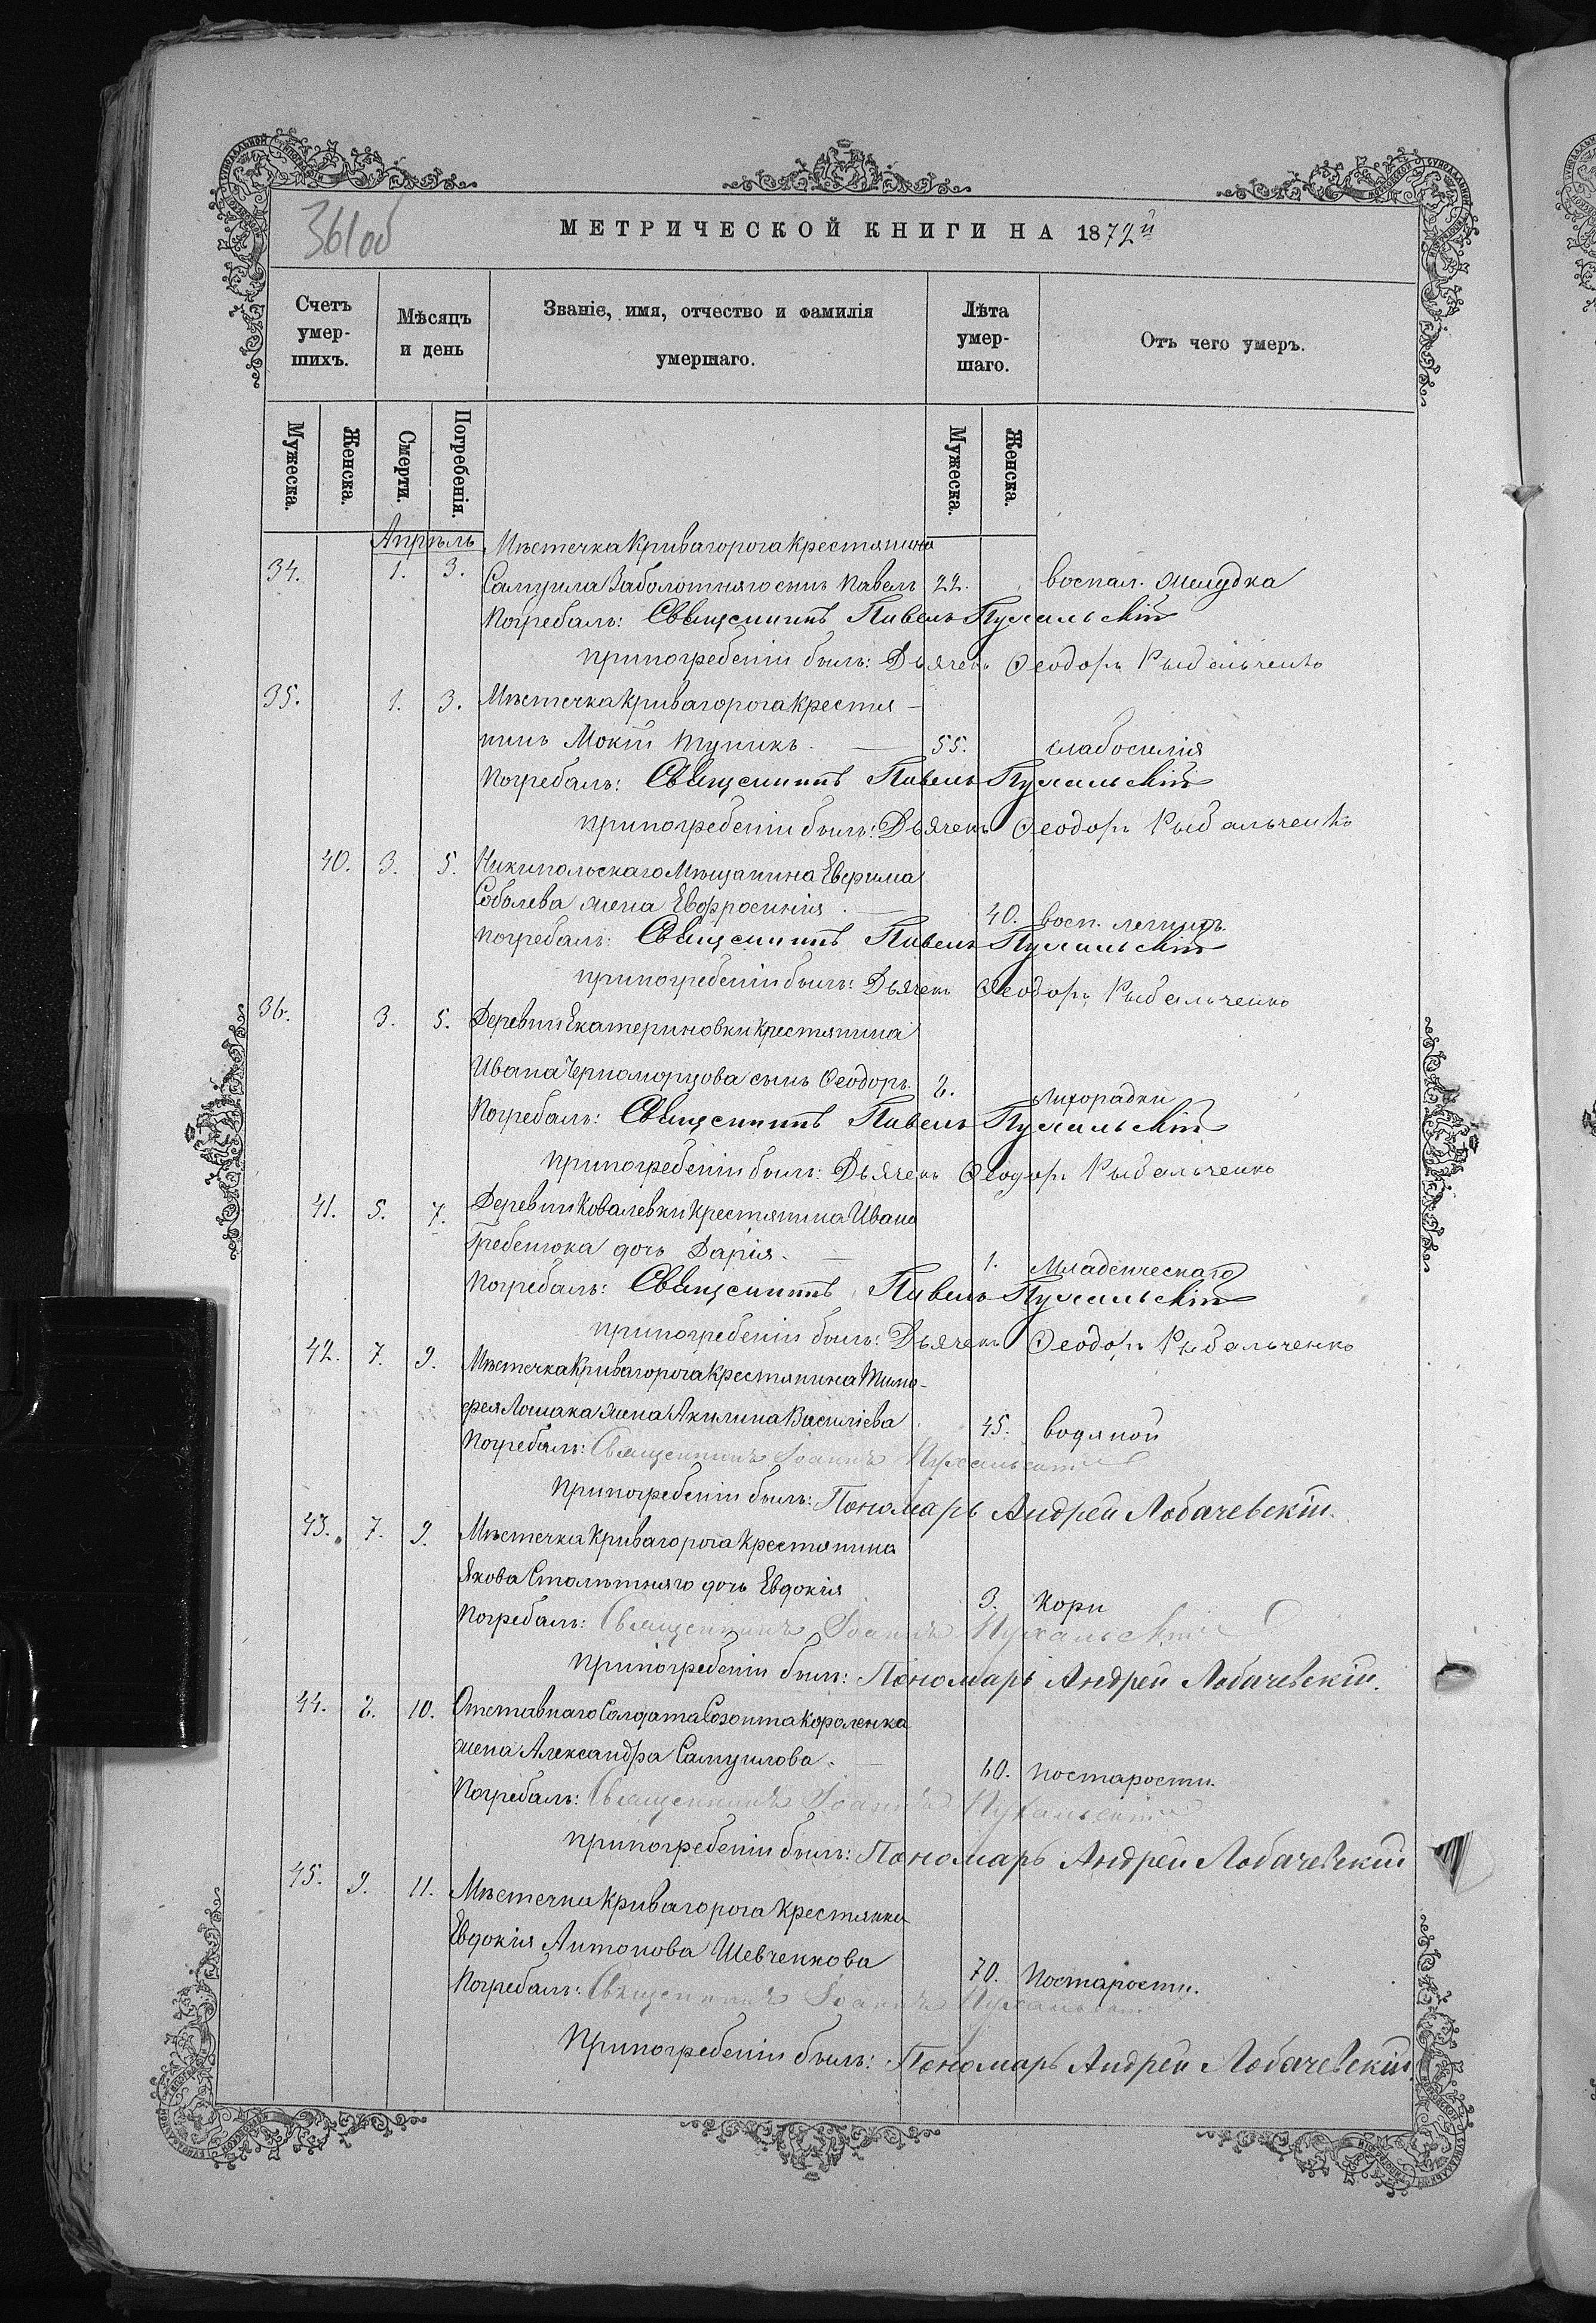 361об
МЕТРИЧЕСКОЙ КНИГИ НА 1872й
Счетъ умершихъ.
Мѣсяцъ и день
Званіе, имя, отчество и фамилія умершаго.
Лѣта умершаго.
Отъ чего умеръ.
Мужеска.
Женска.
Смерти.
Погребенія.
Мужеска.
Женска.
Апрѣль
Мѣстечка Кривагорога Крестянина
34. 1. 3. Самуила Заболотняго сынъ Павелъ 22. воспал. желудка
Погребалъ: Священникъ Павелъ Пухальскій
при погребеніи былъ: Дьячекъ Ѳеодоръ Рыбальченко
35. 1. 3. Мѣстечка Кривагорога Крестя-
нинъ Мокій Тупикъ. 55. слабосилія
Погребалъ: Священникъ Павелъ Пухальскій
при погребеніи былъ: Дьячекъ Ѳеодоръ Рыбальченко
40. 3. 5. Никипольскаго Мѣщанина Евфима
Соболева жена Евфросинія. 40. восп. легкихъ.
Погребалъ: Священникъ Павелъ Пухальскій
при погребеніи былъ: Дьячекъ Ѳеодоръ Рыбальченко
36. 3. 5. Деревни Екатериновки Крестянина
Ивана Черноморцова сынъ Ѳеодоръ 2. Лихорадки
Погребалъ: Священникъ Павелъ Пухальскій
при погребеніи былъ: Дьячекъ Ѳеодоръ Рыбальченко
41. 5. 7. Деревни Ковалевки Крестянина Ивана
Гребенюка дочь Дарія. 1. Младенческаго
Погребалъ: Священникъ Павелъ Пухальскій
при погребеніи былъ: Дьячекъ Ѳеодоръ Рыбальченко
42. 7. 9. Мѣстечка Кривагорога Крестянина Тимо-
фея Лошака жена Акилина Василіева 45. водяной
Погребалъ: Священникъ Іоаннъ Пухальскій
При погребеніи былъ: Пономарь Андрей Лобачевскій.
43. 7. 9. Мѣстечка Кривагорога Крестянина
Якова Столѣтняго дочь Евдокія 3. Кори
Погребалъ: Священникъ Іоаннъ Пухальскій
При погребеніи былъ: Пономарь Андрей Лобачевскій.
44. 8. 10. Отставнаго Солдата Созонта Короленка
жена Александра Самуилова. 60. по старости.
Погребалъ: Священникъ Іоаннъ Пухальскій
при погребеніи былъ: Пономарь Андрей Лобачевскій
45. 9. 11. Мѣстечка Кривагорога Крестянка
Евдокія Антонова Шевченкова 70. По старости.
Погребалъ: Священникъ Іоаннъ Пухальскій
При погребеніи былъ: Пономарь Андрей Лобачевскій.